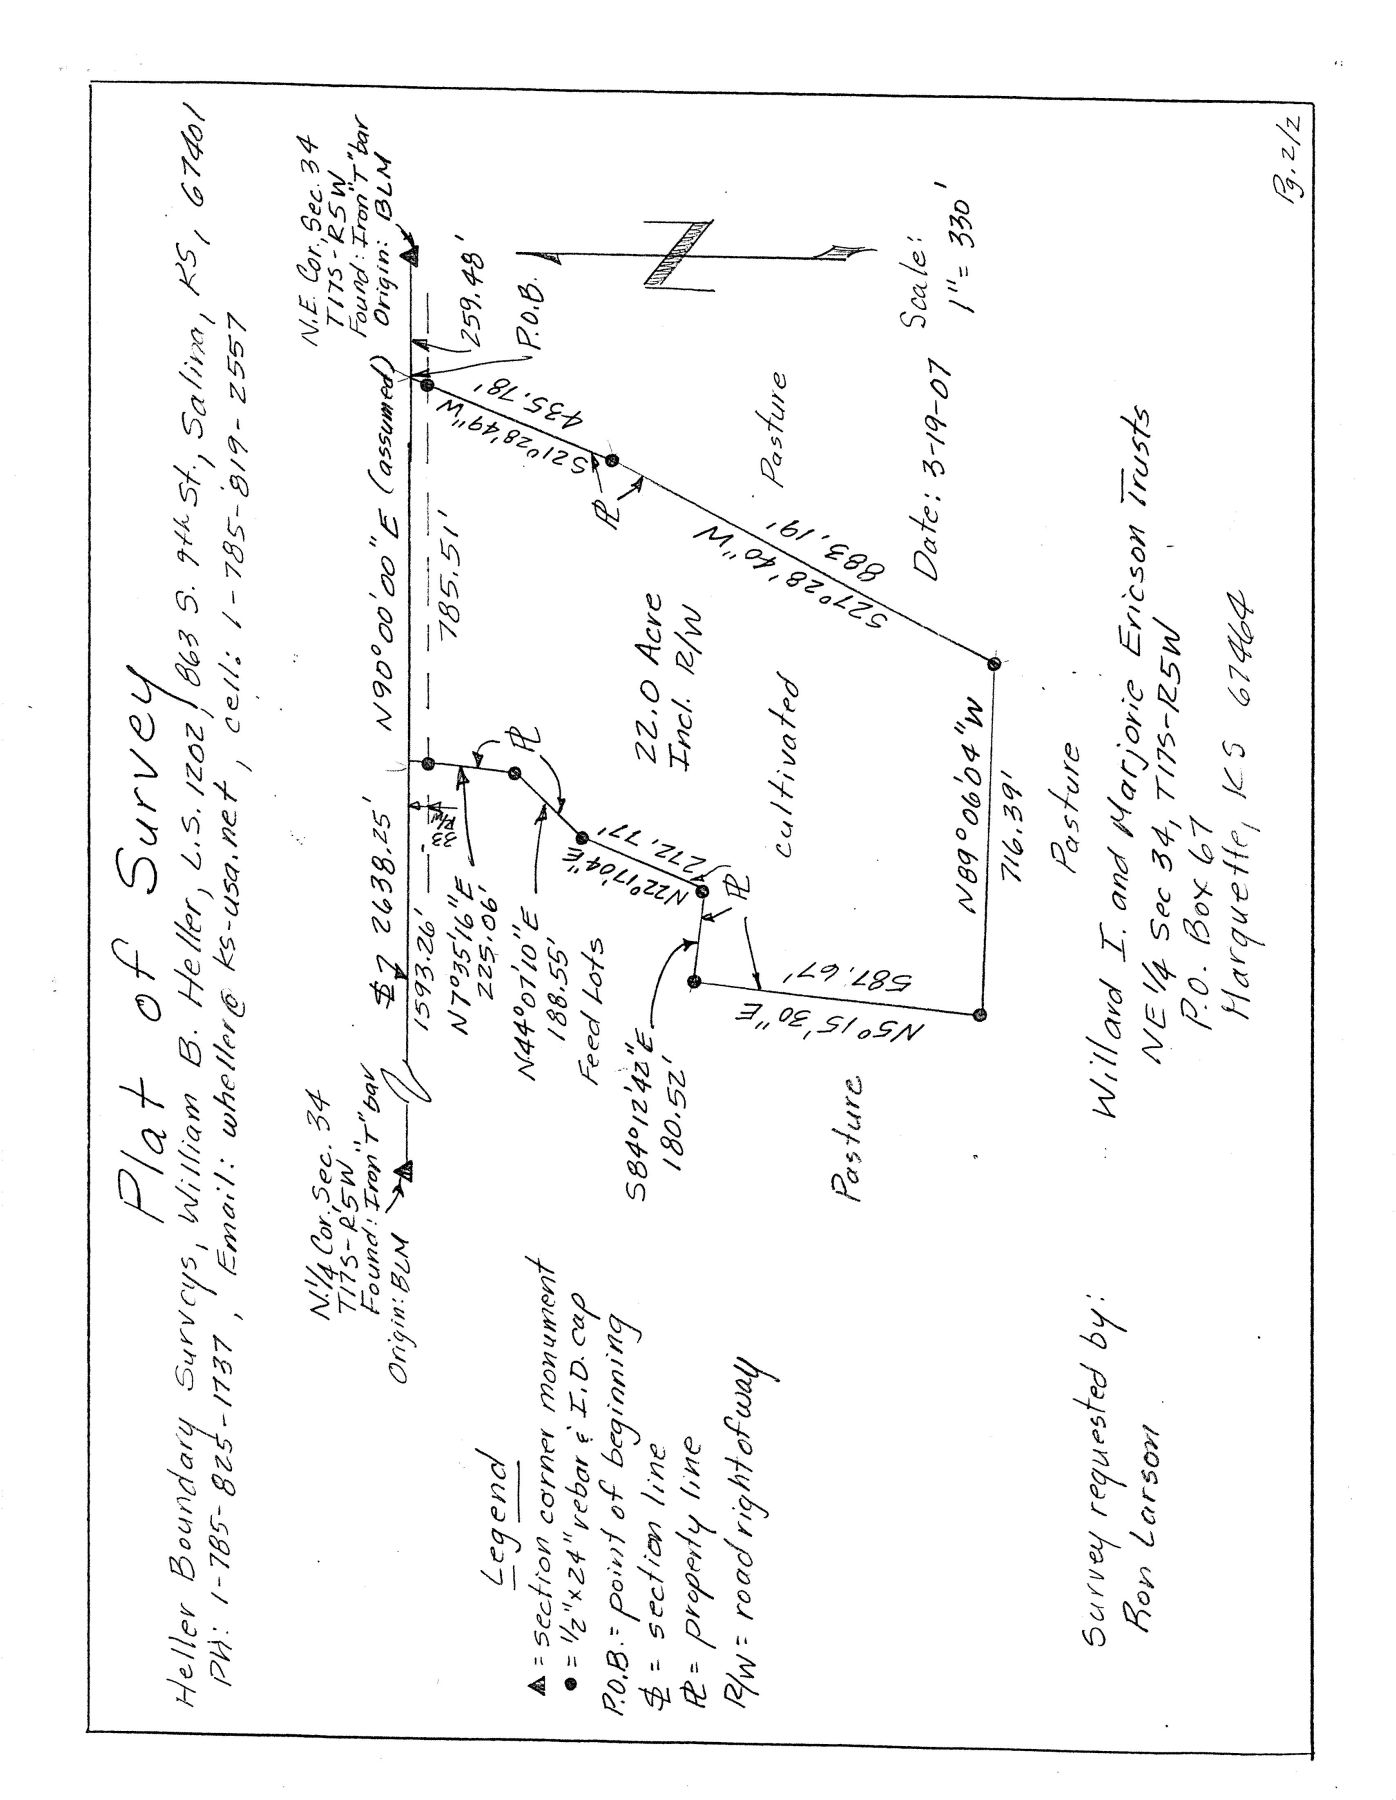 Plat of Survey
Heller Boundary Surveys, William B. Heller, L.S. 1202, 863 S. 9th St., Salina, KS, 67401
PH: 1-785-825-1737, Email: wheller@ks-usa.net, cell: 1-785-819-2557
N.1/4 Cor., Sec. 34
T17S-R5W
Found: Iron "T" bar
Origin: BLM
N.E. Cor., Sec. 34
T17S-R5W
Found: Iron "T" bar
Origin: BLM
2638.25'
N90°00'00"E (assumed)
1593.26'
33'
R/W
785.51'
259.48'
P.O.B.
N7°35'16"E
225.06'
N44°07'10"E
188.55'
Feed Lots
N22°17'04"E
272.77'
S84°12'42"E
180.52'
N5°15'30"E
587.67'
Pasture
PL
PL
PL
S21°28'49"W
435.78'
S27°28'40"W
883.19'
22.0 Acre
Incl. R/W
cultivated
Pasture
N89°06'04"W
716.39'
Pasture
N
Date: 3-19-07
Scale:
1" = 330'
Legend
▲ = section corner monument
● = 1/2" x 24" rebar & I.D. cap
P.O.B. = point of beginning
SL = section line
PL = property line
R/W = road right of way
Survey requested by:
Ron Larson
Willard I. and Marjorie Ericson Trusts
NE 1/4 Sec 34, T17S-R5W
P.O. Box 67
Marquette, KS 67464
Pg. 2/2